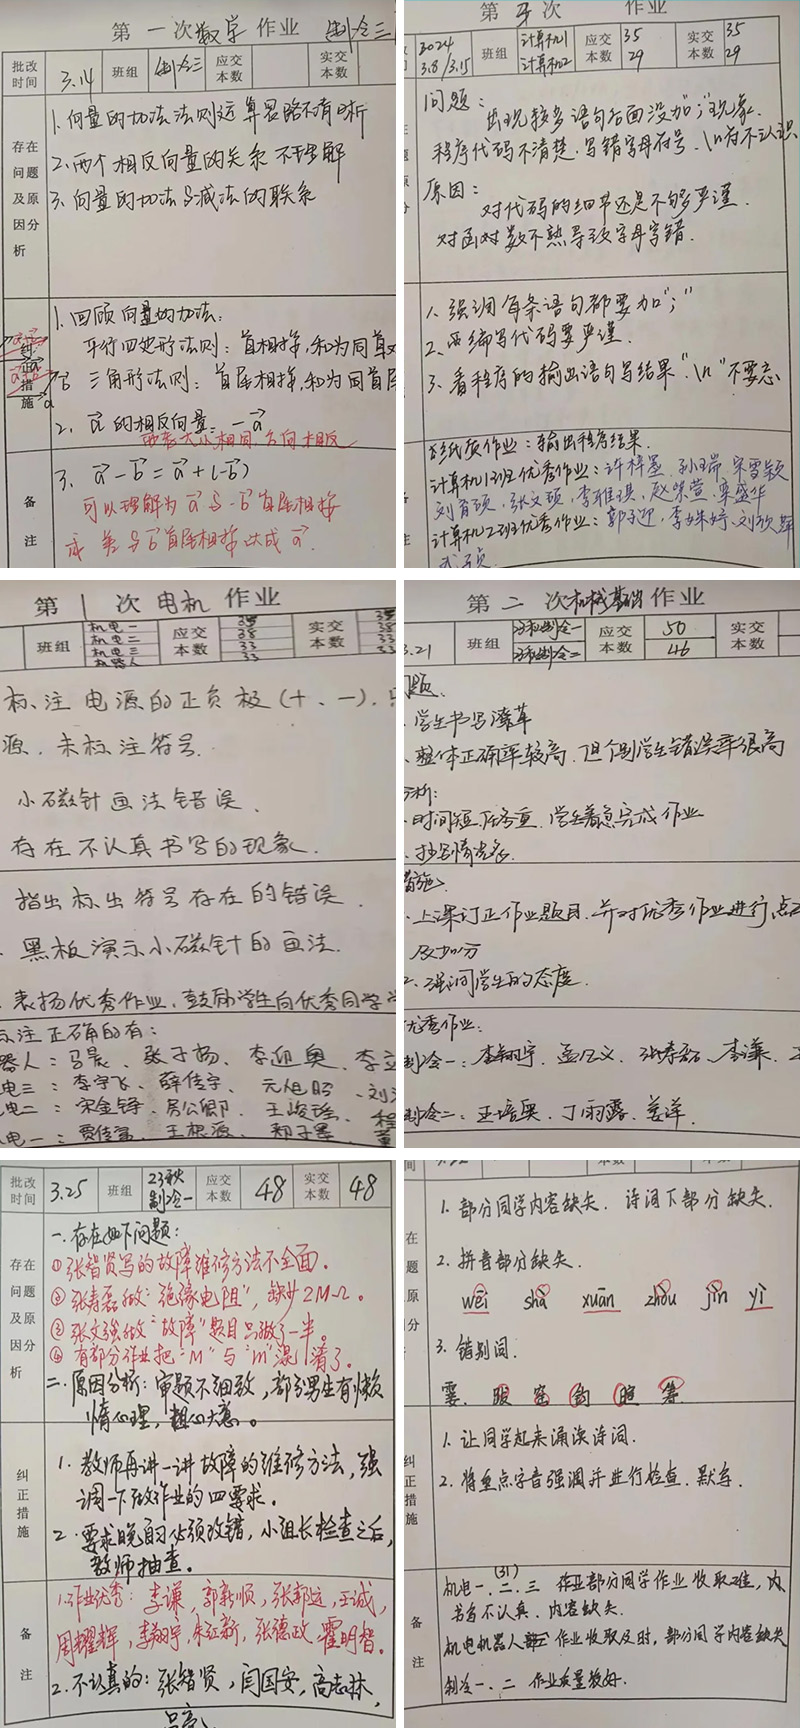 第 一 次 数学 作业 制冷三
批改时间 3.14 班组 制冷三 应交本数 实交本数
存在问题及原因分析
1. 向量的加法法则运算思路不清晰
2. 两个相反向量的关系不理解
3. 向量的加法与减法的联系
纠正措施
1. 回顾向量的加法:
平行四边形法则: 首相接,和为同首
三角形法则: 首尾相接,和为同首尾
2. a 的相反向量: -a
两者大小相同 方向相反
备注
3. a - b = a + (-b)
可以理解为 a 与 -b 首尾相接
或 差 与 b 首尾相接 达成 a.
第 次 作业
2024 3.8/3.15 班组 计算机1 计算机2 应交本数 35 29 实交本数 35 29
问题:
出现较多语句后面没加";"现象.
程序代码不清楚.写错字母符号.
原因:
对代码的细节还是不够严谨.
对函数不熟导致字母写错.
1. 强调每条语句都要加";"
2. 编写代码要严谨.
3. 看程序的输出语句写结果"\n"不要忘
纸质作业: 输出程序结果.
计算机1班优秀作业:
计算机2班优秀作业:
第 1 次 电机 作业
班组 机电一 机电二 机电三 机器人 应交本数 38 33 33 实交本数
标注电源的正负极(+、-).
源.未标注符号.
小磁针画法错误.
存在不认真书写的现象.
指出标出符号存在的错误.
黑板演示小磁针的画法.
表扬优秀作业.鼓励学生向优秀同学学
标注正确的有:
器人: 马晨、张子杨、李迎奥、李
电三: 李宇飞、薛传宇、
电二: 宋金铮、房公卿、
电一: 贾佳富、王根源、
第 二 次 机械基础 作业
3.21 班组 应交本数 50 46 实交本数
问题.
学生书写潦草
整体正确率较高.但个别学生错误率很高
分析:
时间短.任务重.学生着急完成作业
抄写情况多.
措施
上课订正作业题目.并对优秀作业进行点
及加分
2. 强调学生的态度.
优秀作业:
制冷一: 李翔宇、孟凡义、张寿磊、李谦、
制冷二: 王培奥、丁雨露、姜洋
批改时间 3.25 班组 23秋制冷一 应交本数 48 实交本数 48
存在问题及原因分析
一.存在如下问题:
①张智贤写的故障维修方法不全面。
②张寿磊做:"绝缘电阻",缺少2MΩ。
③张文强做"故障"题目只做了一半。
④有部分作业把"M"与"m"混淆了。
二.原因分析: 审题不细致,部分男生有懒
惰心理,粗心大意。
纠正措施
1. 教师再讲一讲故障的维修方法,强
调一下做作业的四要求。
2. 要求晚自习必须改错,小组长检查之后,
教师抽查。
备注
1.作业优秀: 李谦,郭新顺,张郭运,王诚,
周耀辉,李翔宇,朱江新,张德政,霍明智。
2.不认真的: 张智贤,闫国安,高志林,
吕亮
应交本数 实交本数
1. 部分同学内容缺失. 诗词下部分缺失.
2. 拼音部分缺失.
wēi shà xuān zhōu jīn yì
3. 错别词.
1. 让同学起来诵读诗词.
2. 将重点字音强调并进行检查.默写.
备注
机电一.二.三 (31) 作业部分同学作业收取难,内
书写不认真.内容缺失.
机电机器人 作业收取及时,部分同学内容缺失
制冷一、二 作业质量较好.